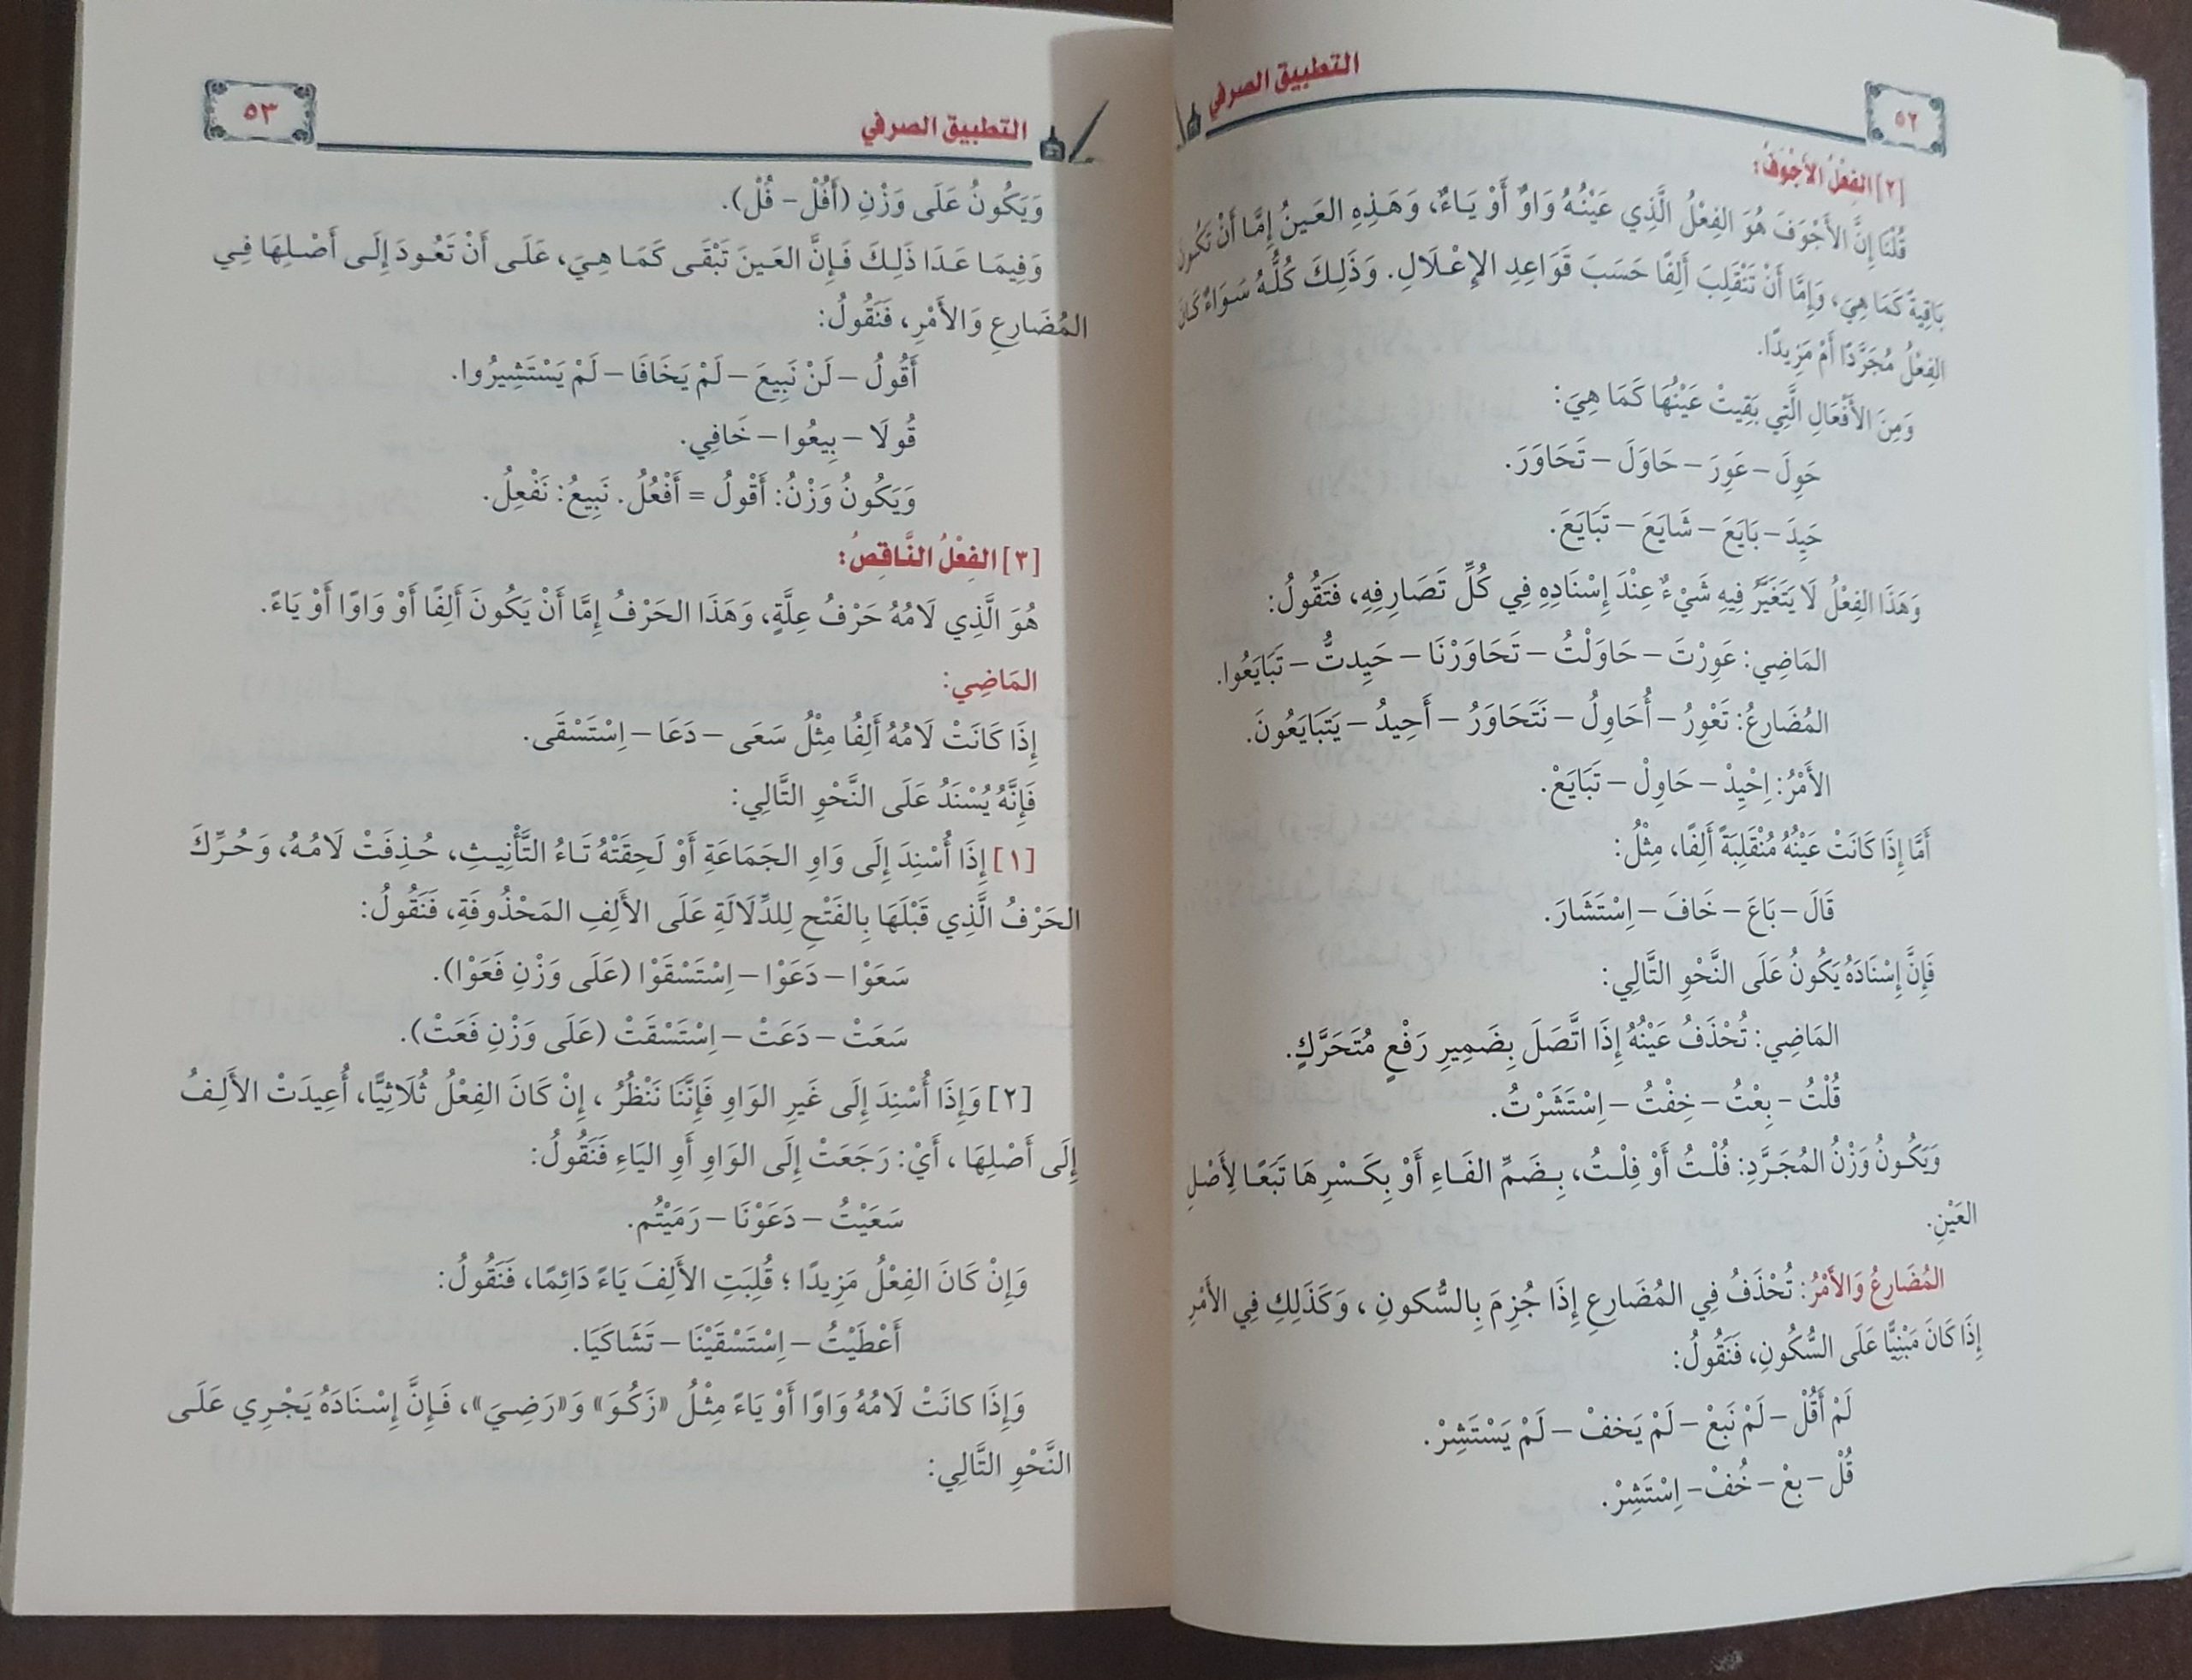 التطبيق الصرفي
٥٢
[٢] الفِعْلُ الأَجْوَفُ:
قُلْنَا إِنَّ الأَجْوَفَ هُوَ الفِعْلُ الَّذِي عَيْنُهُ وَاوٌ أَوْ يَاءٌ، وَهَذِهِ العَينُ إِمَّا أَنْ تَكُونَ
بَاقِيةً كَمَا هِيَ، وَإِمَّا أَنْ تَنْقَلِبَ أَلِفًا حَسَبَ قَوَاعِدِ الإِعْلَالِ. وَذَلِكَ كُلُّهُ سَوَاءٌ كَانَ
الفِعْلُ مُجَرَّدًا أَمْ مَزِيدًا.
وَمِنَ الأَفْعَالِ الَّتِي بَقِيتْ عَيْنُهَا كَمَا هِيَ:
حَوِلَ – عَوِرَ – حَاوَلَ – تَحَاوَرَ.
حَيِدَ – بَايَعَ – شَايَعَ – تَبَايَعَ.
وَهَذَا الفِعْلُ لَا يَتَغَيَّرُ فِيهِ شَيْءٌ عِنْدَ إِسْنَادِهِ فِي كُلِّ تَصَارِفِهِ، فَتَقُولُ:
المَاضِي: عَوِرْتَ – حَاوَلْتُ – تَحَاوَرْنَا – حَيِدتُّ – تَبَايَعُوا.
المُضَارِعُ: تَعْوِرُ – أُحَاوِلُ – نَتَحَاوَرُ – أَحِيدُ – يَتَبَايَعُونَ.
الأَمْرُ: اِحْيِدْ – حَاوِلْ – تَبَايَعْ.
أَمَّا إِذَا كَانَتْ عَيْنُهُ مُنْقَلِبَةً أَلِفًا، مِثْلُ:
قَالَ – بَاعَ – خَافَ – اِسْتَشَارَ.
فَإِنَّ إِسْنَادَهُ يَكُونُ عَلَى النَّحْوِ التَّالِي:
المَاضِي: تُحْذَفُ عَيْنُهُ إِذَا اتَّصَلَ بِضَمِيرِ رَفْعٍ مُتَحَرَّكٍ.
قُلْتُ – بِعْتُ – خِفْتُ – اِسْتَشَرْتُ.
وَيَكُونُ وَزْنُ المُجَرَّدِ: فُلْتُ أَوْ فِلْتُ، بِضَمِّ الفَاءِ أَوْ بِكَسْرِهَا تَبَعًا لِأَصْلِ
العَيْنِ.
المُضَارِعُ وَالأَمْرُ: تُحْذَفُ فِي المُضَارِعِ إِذَا جُزِمَ بِالسُّكونِ ، وَكَذَلِكِ فِي الأَمْرِ
إِذَا كَانَ مَبْنِيًّا عَلَى السُّكُونِ، فَنَقُولُ:
لَمْ أَقُلْ – لَمْ نَبِعْ – لَمْ يَخفْ – لَمْ يَسْتَشِرْ.
قُلْ – بِعْ – خُفْ – اِسْتَشِرْ.
التطبيق الصرفي
٥٣
وَيَكُونُ عَلَى وَزْنِ (أَفُلْ – فُلْ).
وَفِيمَا عَدَا ذَلِكَ فَإِنَّ العَينَ تَبْقَى كَمَا هِيَ، عَلَى أَنْ تَعُودَ إِلَى أَصْلِهَا فِي
المُضَارِعِ وَالأَمْرِ، فَنَقُولُ:
أَقُولُ – لَنْ نَبِيعَ – لَمْ يَخَافَا – لَمْ يَسْتَشِيرُوا.
قُولَا – بِيعُوا – خَافِي.
وَيَكُونُ وَزْنُ: أَقْولُ = أَفْعُلُ. نَبِيعُ: نَفْعِلُ.
[٣] الفِعْلُ النَّاقِصُ:
هُوَ الَّذِي لَامُهُ حَرْفُ عِلَّةٍ، وَهَذَا الحَرْفُ إِمَّا أَنْ يَكُونَ أَلِفًا أَوْ وَاوًا أَوْ يَاءً.
المَاضِي:
إِذَا كَانَتْ لَامُهُ أَلِفُا مِثْلُ سَعَى – دَعَا – اِسْتَسْقَى.
فَإِنَّهُ يُسْنَدُ عَلَى النَّحْوِ التَّالِي:
[١] إِذَا أُسْنِدَ إِلَى وَاوِ الجَمَاعَةِ أَوْ لَحِقَتْهُ تَاءُ التَّأْنِيثِ، حُذِفَتْ لَامُهُ، وَحُرِّكَ
الحَرْفُ الَّذِي قَبْلَهَا بِالفَتْحِ لِلدِّلَالَةِ عَلَى الأَلِفِ المَحْذُوفَةِ، فَنَقُولُ:
سَعَوْا – دَعَوْا – اِسْتَسْقَوْا (عَلَى وَزْنِ فَعَوْا).
سَعَتْ – دَعَتْ – اِسْتَسْقَتْ (عَلَى وَزْنِ فَعَتْ).
[٢] وَإِذَا أُسْنِدَ إِلَى غَيرِ الوَاوِ فَإِنَّنَا نَنْظُرُ ، إِنْ كَانَ الفِعْلُ ثُلَاثِيًّا، أُعِيدَتْ الأَلِفُ
إِلَى أَصْلِهَا ، أَيْ: رَجَعَتْ إِلَى الوَاوِ أَوِ اليَاءِ فَنَقُولُ:
سَعَيْتُ – دَعَوْنَا – رَمَيْتُم.
وَإِنْ كَانَ الفِعْلُ مَزِيدًا ؛ قُلِبَتِ الأَلِفَ يَاءً دَائِمًا، فَنَقُولُ:
أَعْطَيْتُ – اِسْتَسْقَيْنَا – تَشَاكَيَا.
وَإِذَا كانَتْ لَامُهُ وَاوًا أَوْ يَاءً مِثْلُ «زَكُوَ» وَ«رَضِيَ»، فَإِنَّ إِسْنَادَهُ يَجْرِي عَلَى
النَّحْوِ التَّالِي: